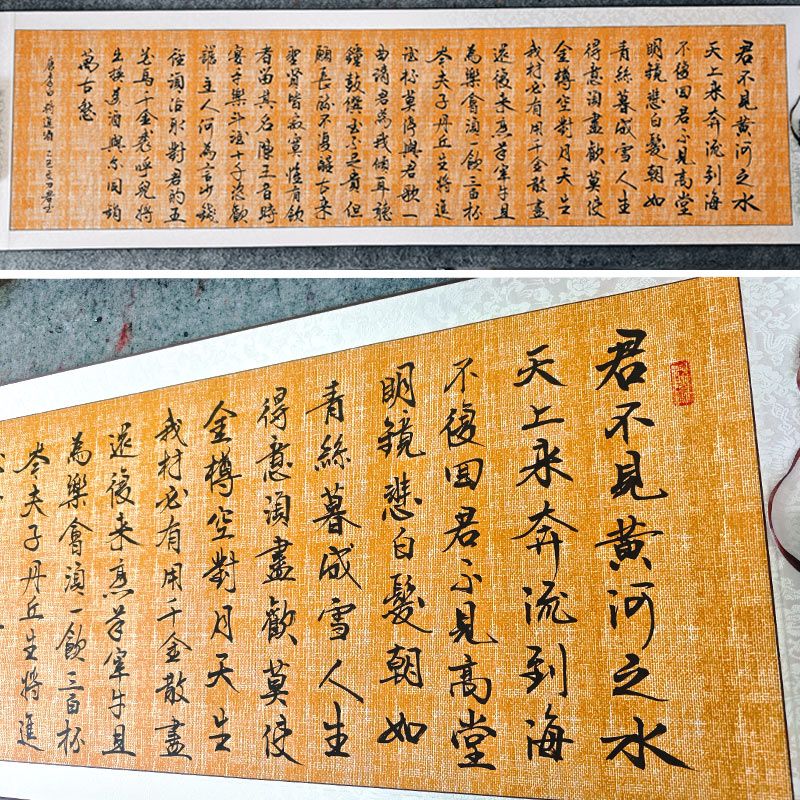 君不見黃河之水
天上來奔流到海
不復回君不見高堂
明鏡悲白髮朝如
青絲暮成雪人生
得意須盡歡莫使
金樽空對月天生
我材必有用千金散盡
還復來烹羊宰牛且
為樂會須一飲三百杯
岑夫子丹丘生將進
酒杯莫停與君歌一
曲請君為我傾耳聽
鐘鼓饌玉不足貴但
願長醉不復醒古來
聖賢皆寂寞惟有飲
者留其名陳王昔時
宴平樂斗酒十千恣歡
謔主人何為言少錢
徑須沽取對君酌五
花馬千金裘呼兒將
出換美酒與爾同銷
萬古愁
唐李白將進酒
君不見黃河之水
天上來奔流到海
不復回君不見高堂
明鏡悲白髮朝如
青絲暮成雪人生
得意須盡歡莫使
金樽空對月天生
我材必有用千金散盡
還復來烹羊宰牛且
為樂會須一飲三百杯
岑夫子丹丘生將進